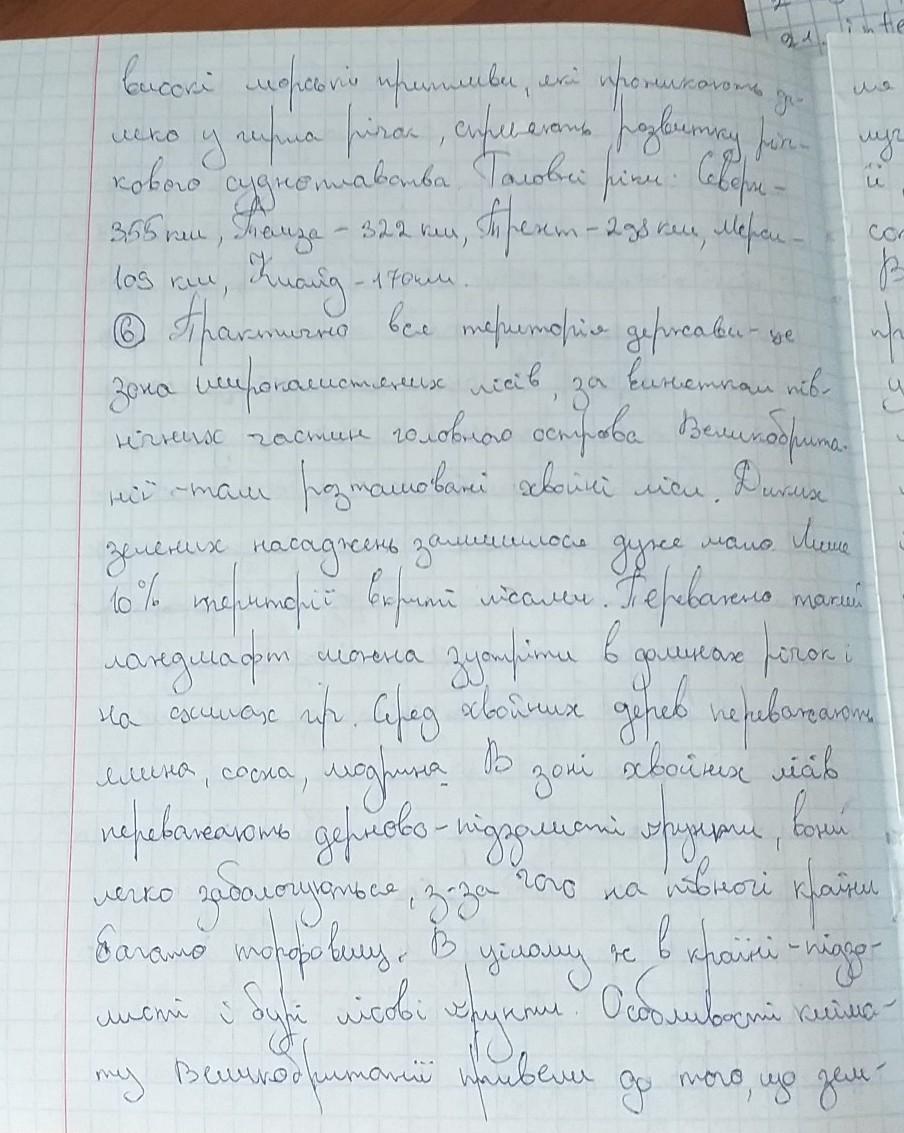 високі морські припливи, які проникають да-
леко у гирла річок, сприяють розвитку річ-
кового судноплавства. Головні ріки: Северн -
355 км, Темза - 322 км, Трент - 298 км, Мерсі -
109 км, Клайд - 170 км.
⑥ Практично вся територія держави - це
зона широколистяних лісів, за винятком пів-
нічних частин головного острова Великобрита-
нії - там розташовані хвойні ліси. Диких
зелених насаджень залишилося дуже мало. Лише
10% території вкриті лісами. Переважно такий
ландшафт можна зустріти в долинах річок і
на схилах гір. Серед хвойних дерев переважають
ялина, сосна, модрина. В зоні хвойних лісів
переважають дерново-підзолисті ґрунти, вони
легко заболочуються, з-за чого на півночі країни
багато торфовищ. В цілому ж в країні - підзо-
листі і бурі лісові ґрунти. Особливості кліма-
ту Великобританії привели до того, що зем-